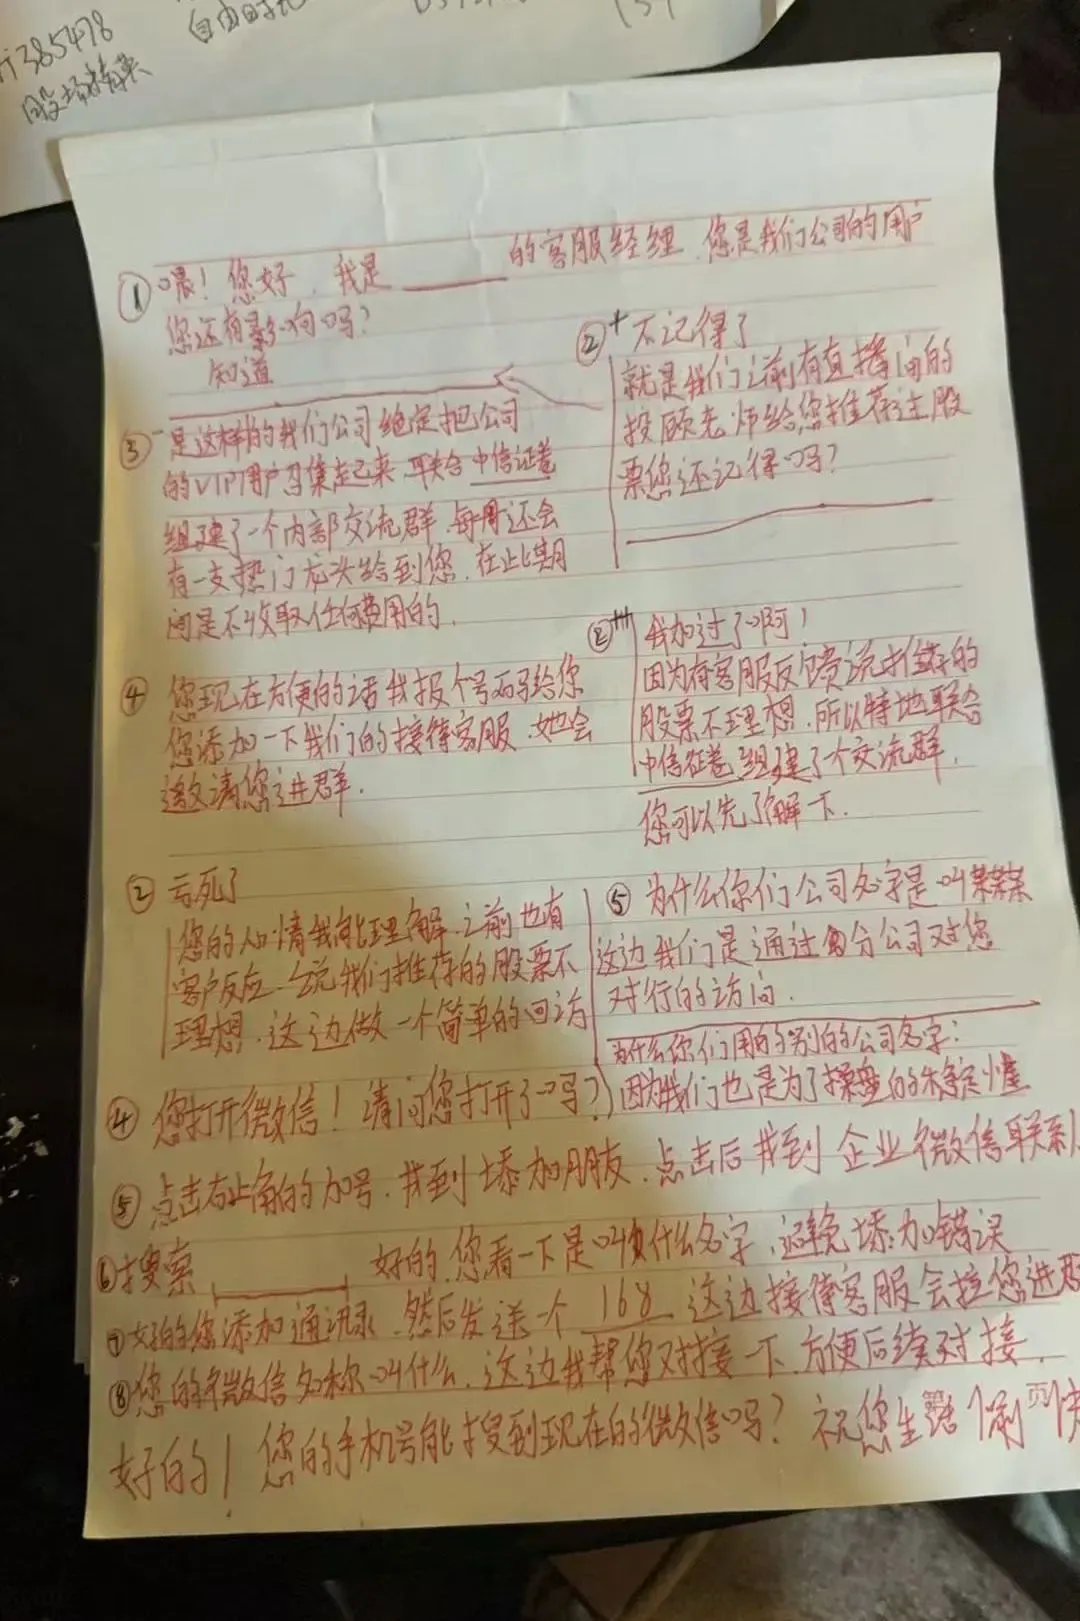 385478
股场精英
① 喂！您好，我是______的客服经理，您是我们公司的用户
您还有影响吗？
知道
②+ 不记得了
就是我们之前有直播间的
投顾老师给您推荐过股
票您还记得吗？
③ 是这样的我们公司绝定把公司
的VIP用户召集起来，联合中信证卷
组建了一个内部交流群，每周还会
有一支热门龙头给到您，在此期
间是不收取任何费用的，
②+++ 我加过了啊！
因为有客服反馈说推荐的
股票不理想，所以特地联合
中信证卷组建了个交流群，
您可以先了解一下.
④ 您现在方便的话我报个号码给您
您添加一下我们的接待客服，她会
邀请您进群.
② 亏死了
您的心情我能理解，之前也有
客户反应，说我们推荐的股票不
理想，这边做一个简单的回访
⑤ 为什么你们公司名字是叫某某某
这边我们是通过分公司对您
对行的访问.
为什么你们用的别的公司名字：
因为我们也是为了操盘的稳定性
④ 您打开微信！请问您打开了吗？
⑤ 点击右上角的加号，找到添加朋友，点击后找到企业微信联系
⑥ 搜索______ 好的，您看一下是叫什么名字，避免添加错误
⑦ 好的您添加通讯录，然后发送个 168 这边接待客服会拉您进群
⑧ 您的微信名称叫什么，这边我帮您对接一下，方便后续对接，
好的！您的手机号能搜到现在的微信吗？祝您生活愉快